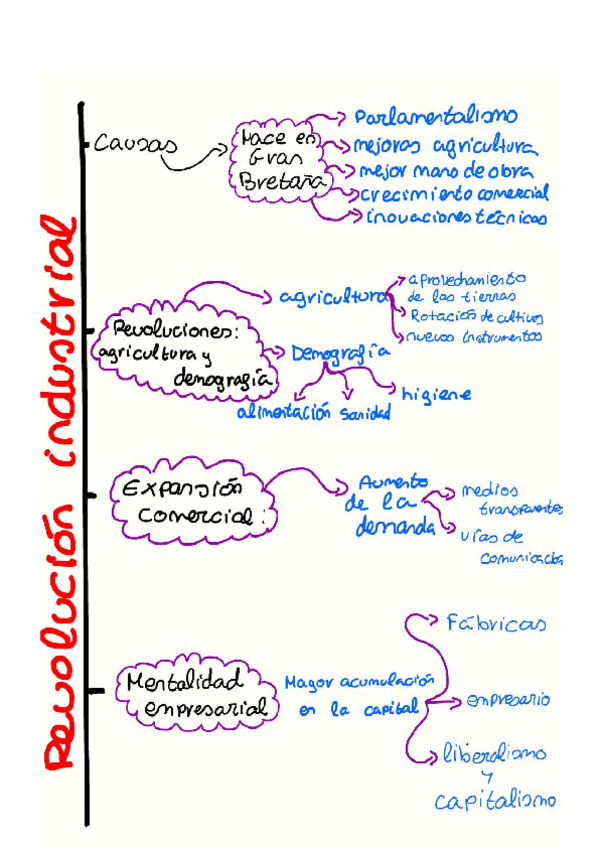 Revolución industrial
Causas
Nace en
Gran
Bretaña
Parlamentalismo
mejoras agricultura
mejor mano de obra
crecimiento comercial
inovaciones técnicas
Revoluciones:
agricultura y
demografía
agricultura
aprovechamiento
de las tierras
Rotación de cultivos
nuevos instrumentos
Demografía
alimentación
sanidad
higiene
Expansión
Comercial:
Aumento
de la
demanda
medios
vías de
comunicación
Mentalidad
empresarial
Mayor acumulación
en la capital
Fábricas
empresario
liberalismo
y
capitalismo